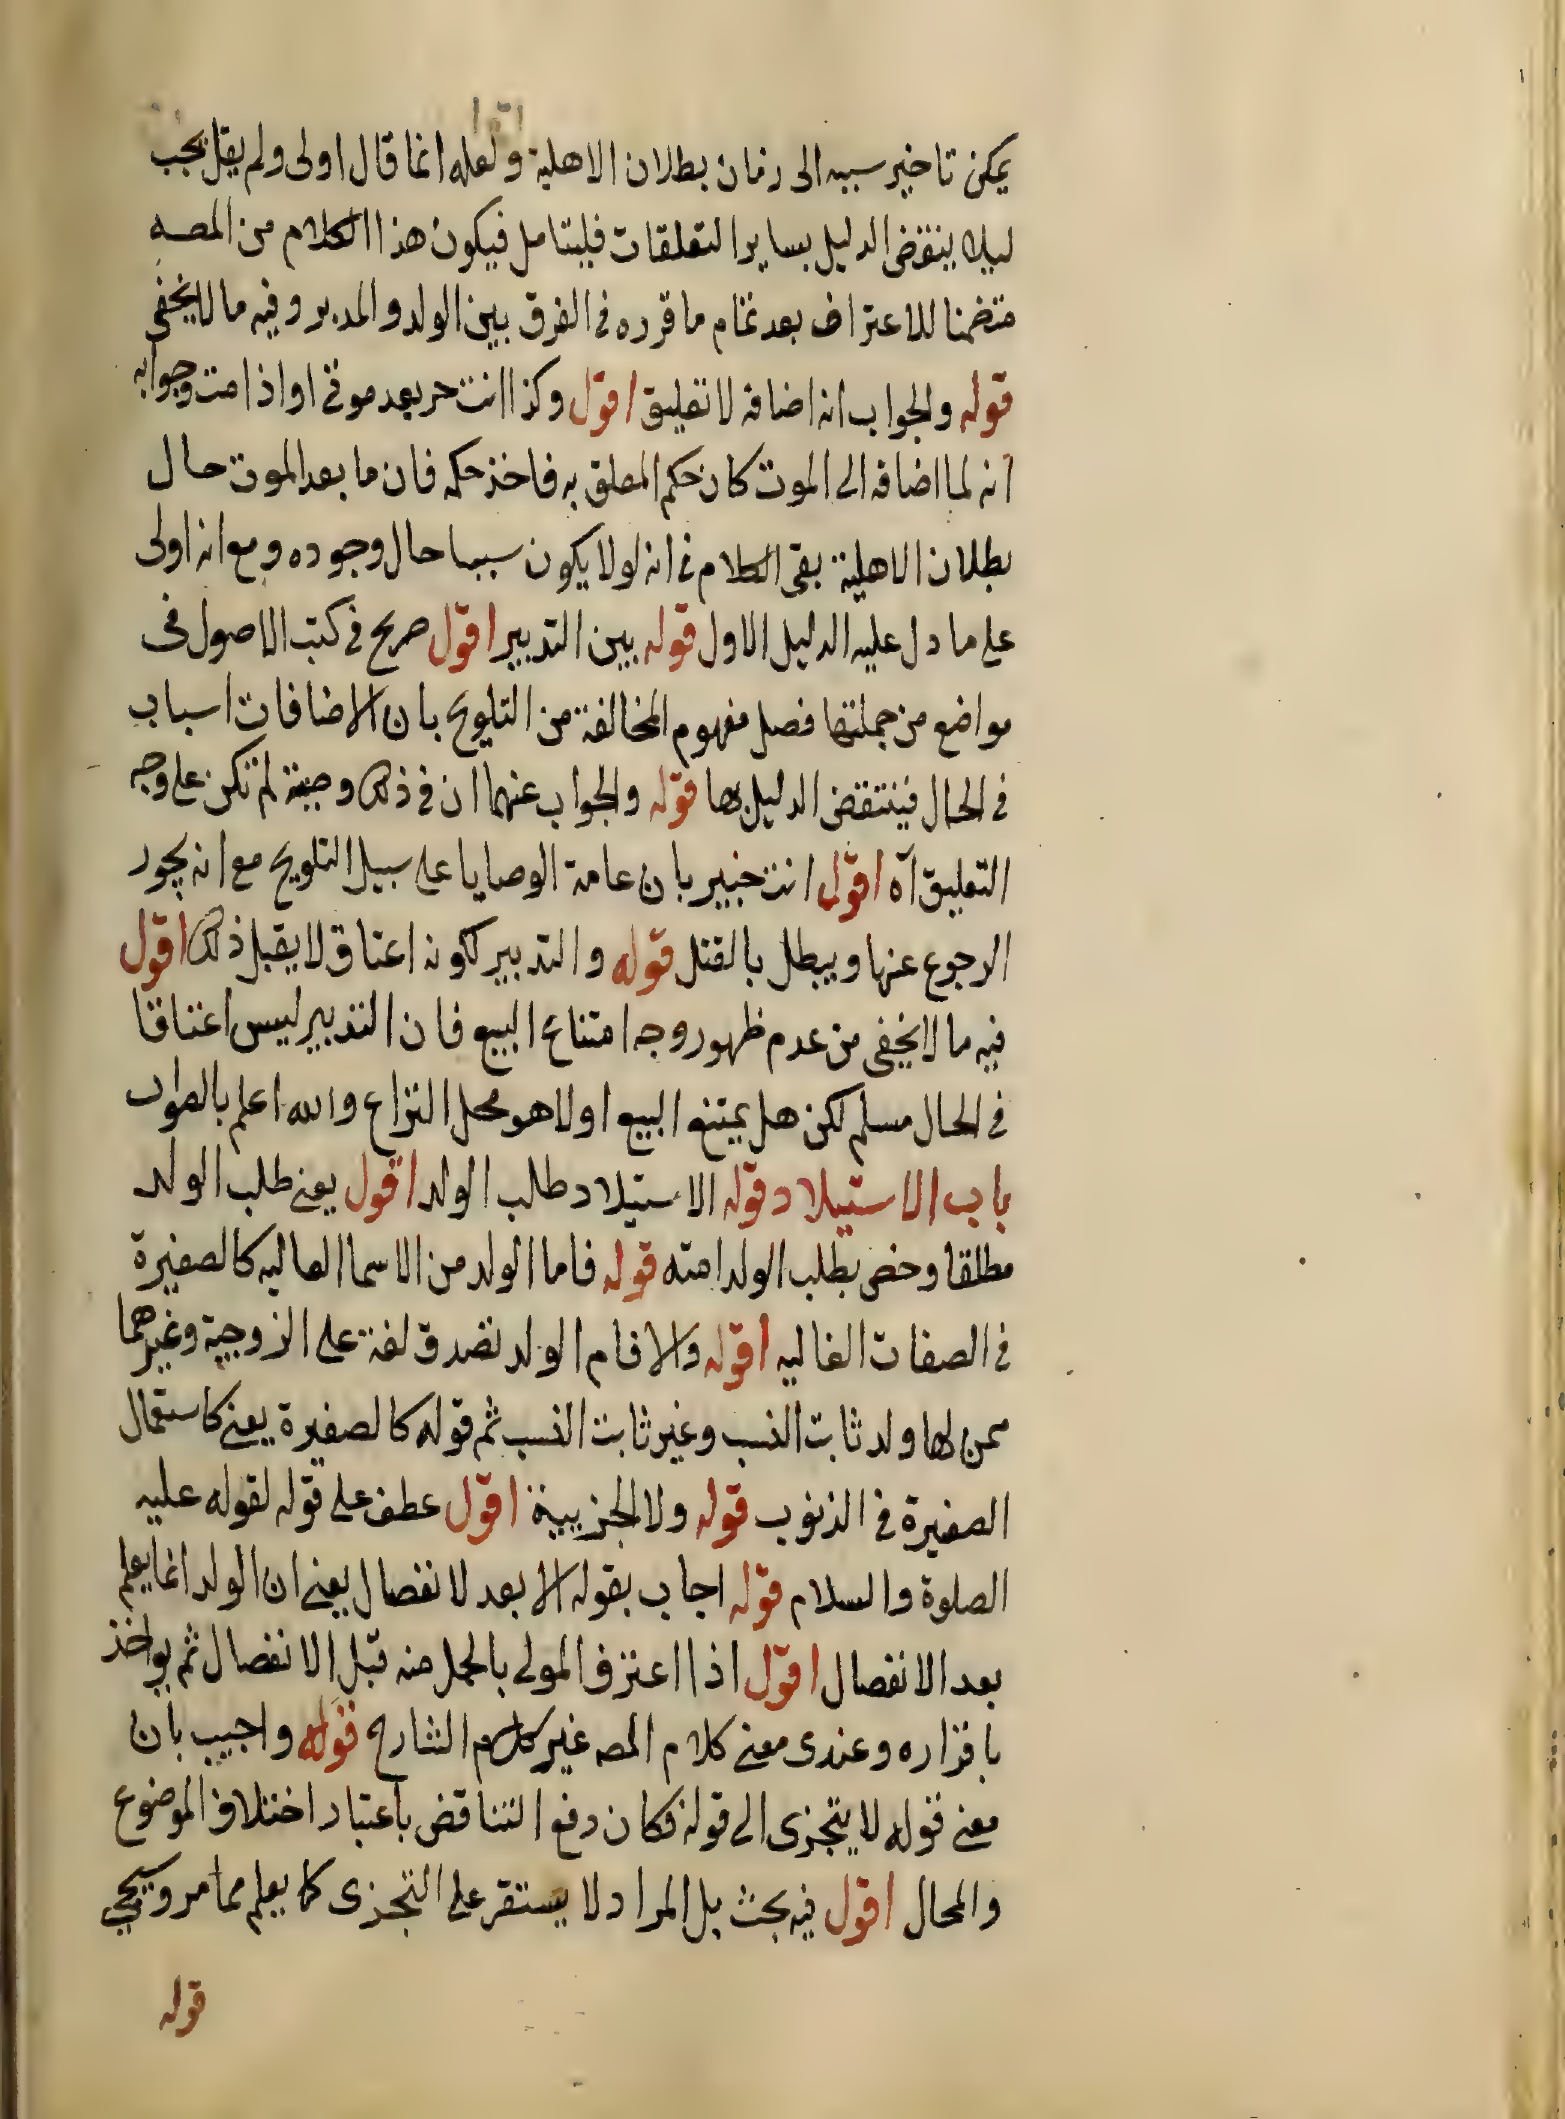 يمكن تاخير سببه الى زمان بطلان الاهلية ولعله انما قال اولى ولم يقل يجب
ليلا ينقض الدليل بساير التعلقات فليتامل فيكون هذا الكلام من المصه
متضمنا للاعتراف بعد تمام ما قرره في الفرق بين الولد و المدبر وفيه ما لا يخفى
قوله والجواب انه اضافة لا تعليق اقول وكذا انت حر بعد موتى او اذا مت وجوابه
انه لما اضافه الى الموت كان حكم المعلق به فاخذ حكمه فان ما بعد الموت حال
بطلان الاهلية بقى الكلام في انه لو لا يكون سببا حال وجوده ومع انه اولى
على ما دل عليه الدليل الاول قوله بين التدبير اقول صرح في كتب الاصول في
مواضع من جملتها فصل مفهوم المخالفة من التلويح بان الاضافات اسباب
في الحال فينتقض الدليل بها قوله والجواب عنهما ان في ذلك وصية لم تكن على وجه
التعليق آه اقول انت خبير بان عامة الوصايا على سبيل التلويح مع انه يجوز
الرجوع عنها ويبطل بالقتل قوله والتدبير لكونه اعتاق لا يقبل ذلك اقول
فيه ما لا يخفى من عدم ظهور وجه امتناع البيع فان التدبير ليس اعتاقا
في الحال مسلم لكن هل يمتنع البيع اولا هو محل النزاع والله اعلم بالصواب
باب الاستيلاد قوله الاستيلاد طلب الولد اقول يعني طلب الولد
مطلقا وخص بطلب الولد امته قوله فاما الولد من الاسما الغاليه كالصغيرة
في الصفات الغاليه اقوله والا فام الولد تصدق لغة على الزوجية وغيرهما
ممن لها ولد ثابت النسب وغير ثابت النسب ثم قوله كالصغيرة يعني كاستعمال
الصغيرة في الذنوب قوله ولا الجزيية اقول عطف على قوله لقوله عليه
الصلوة والسلام قوله اجاب بقوله الا بعد لانفصال يعني ان الولد انما يعلم
بعد الانفصال اقول اذا اعترف المولى بالحمل منه قبل الانفصال ثم يواخذ
باقراره وعندى معنى كلام المصه غير كلام الشارح قوله واجيب بان
معنى قوله لا يتجزى الى قوله فكان دفع التناقض باعتبار اختلاف الموضوع
والمحال اقول فيه بحث بل المراد لا يستقر على التجزى كما يعلم مما مر وسيجي
قوله